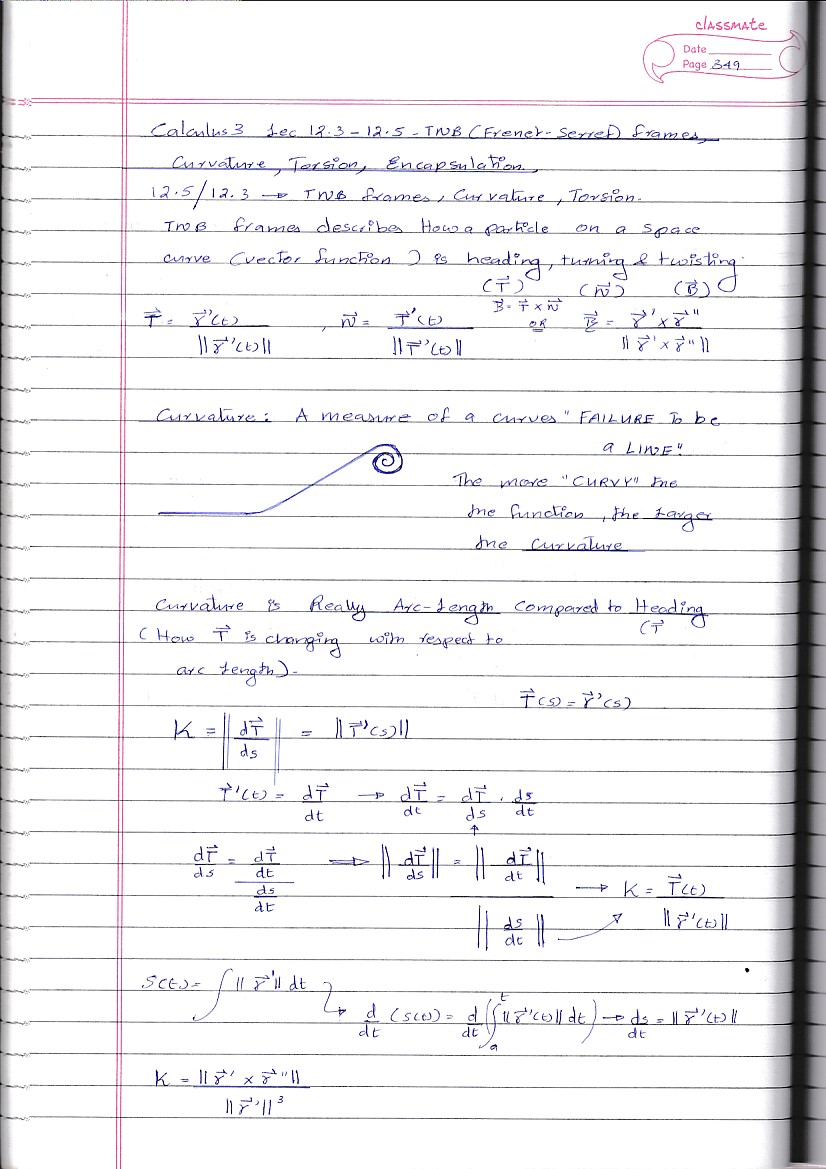 classmate
Date
Page 349
Calculus 3 Lec 12.3 - 12.5 - TNB (Frenet-Serret) frames,
Curvature, Torsion, Encapsulation.
12.5/12.3 → TNB frames, Curvature, Torsion.
TNB frames describes How a particle on a space
curve (vector function) is heading, turning & twisting.
(T⃗) (N⃗) (B⃗)
B⃗ = T⃗ × N⃗
T⃗ = r⃗'(t) / ||r⃗'(t)|| , N⃗ = T⃗'(t) / ||T⃗'(t)|| OR B⃗ = r⃗' × r⃗'' / ||r⃗' × r⃗''||
Curvature: A measure of a curves "FAILURE To be
a LINE"
The more "CURVY" the
the function, the Larger
the curvature
Curvature is Really Arc-Length Compared to Heading
(How T⃗ is changing with respect to (T⃗
arc Length).
T⃗(s) = r⃗'(s)
K = ||dT⃗/ds|| = ||T⃗'(s)||
T⃗'(t) = dT⃗/dt → dT⃗/dt = dT⃗/ds · ds/dt
dT⃗/ds = (dT⃗/dt) / (ds/dt) ⟹ ||dT⃗/ds|| = ||dT⃗/dt|| / ||ds/dt|| → K = T⃗(t) / ||r⃗'(t)||
S(t) = ∫ ||r⃗'|| dt
d/dt (s(t)) = d/dt (∫ₐᵗ ||r⃗'(t)|| dt) → ds/dt = ||r⃗'(t)||
K = ||r⃗' × r⃗''|| / ||r⃗'||³